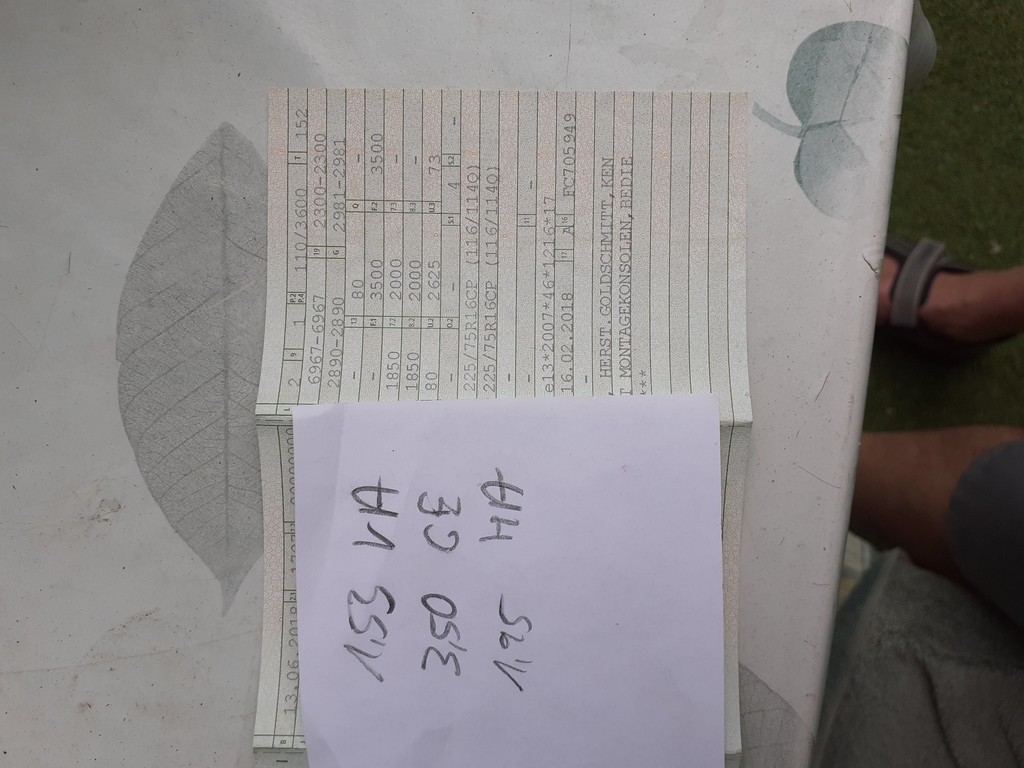 2 9 1 P.2 P.4 110/3600 T 152
6967-6967 19 2300-2300
2880-2890 G 2981-2981
- 13 80 Q -
- F.1 3500 F.2 3500
1850 7.2 2000 7.3 -
1850 8.2 2000 8.3 -
80 U.2 2625 U.3 73
- O.2 - S.1 4 S.2 -
225/75R16CP (116/114Q)
225/75R16CP (116/114Q)
- -
- 11 -
e13*2007*46*1216*17
16.02.2018 17 A 16 FC705949
HERST.GOLDSCHMITT,KEN
MONTAGEKONSOLEN,BEDIE
***
B 13.06.2018
1,53 VA
3,50 GE
1,95 HA